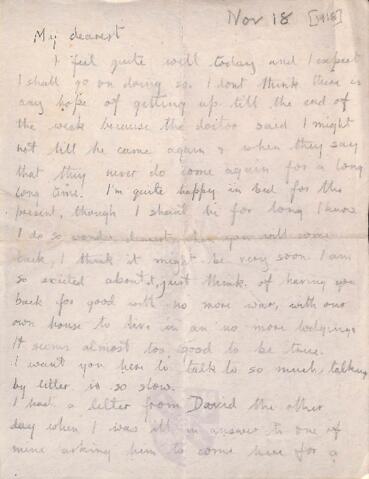 Nov 18 [1918]
My dearest
I feel quite well today and I expect
I shall go on doing so. I dont think there is
any hope of getting up till the end of
the week because the doctor said I might
not till he came again & when they say
that they never do come again for a long
long time. I'm quite happy in bed for the
present, though I shan't be for long I know
I do so wonder dearest when you will come
back, I think it might be very soon. I am
so excited about it, just think of having you
back for good with no more war, with our
own house to live in an no more lodgings
It seems almost too good to be true.
I want you here to talk to so much, talking
by letter is so slow.
I had a letter from David the other
day when I was ill in answer to one of
mine asking him to come here for a